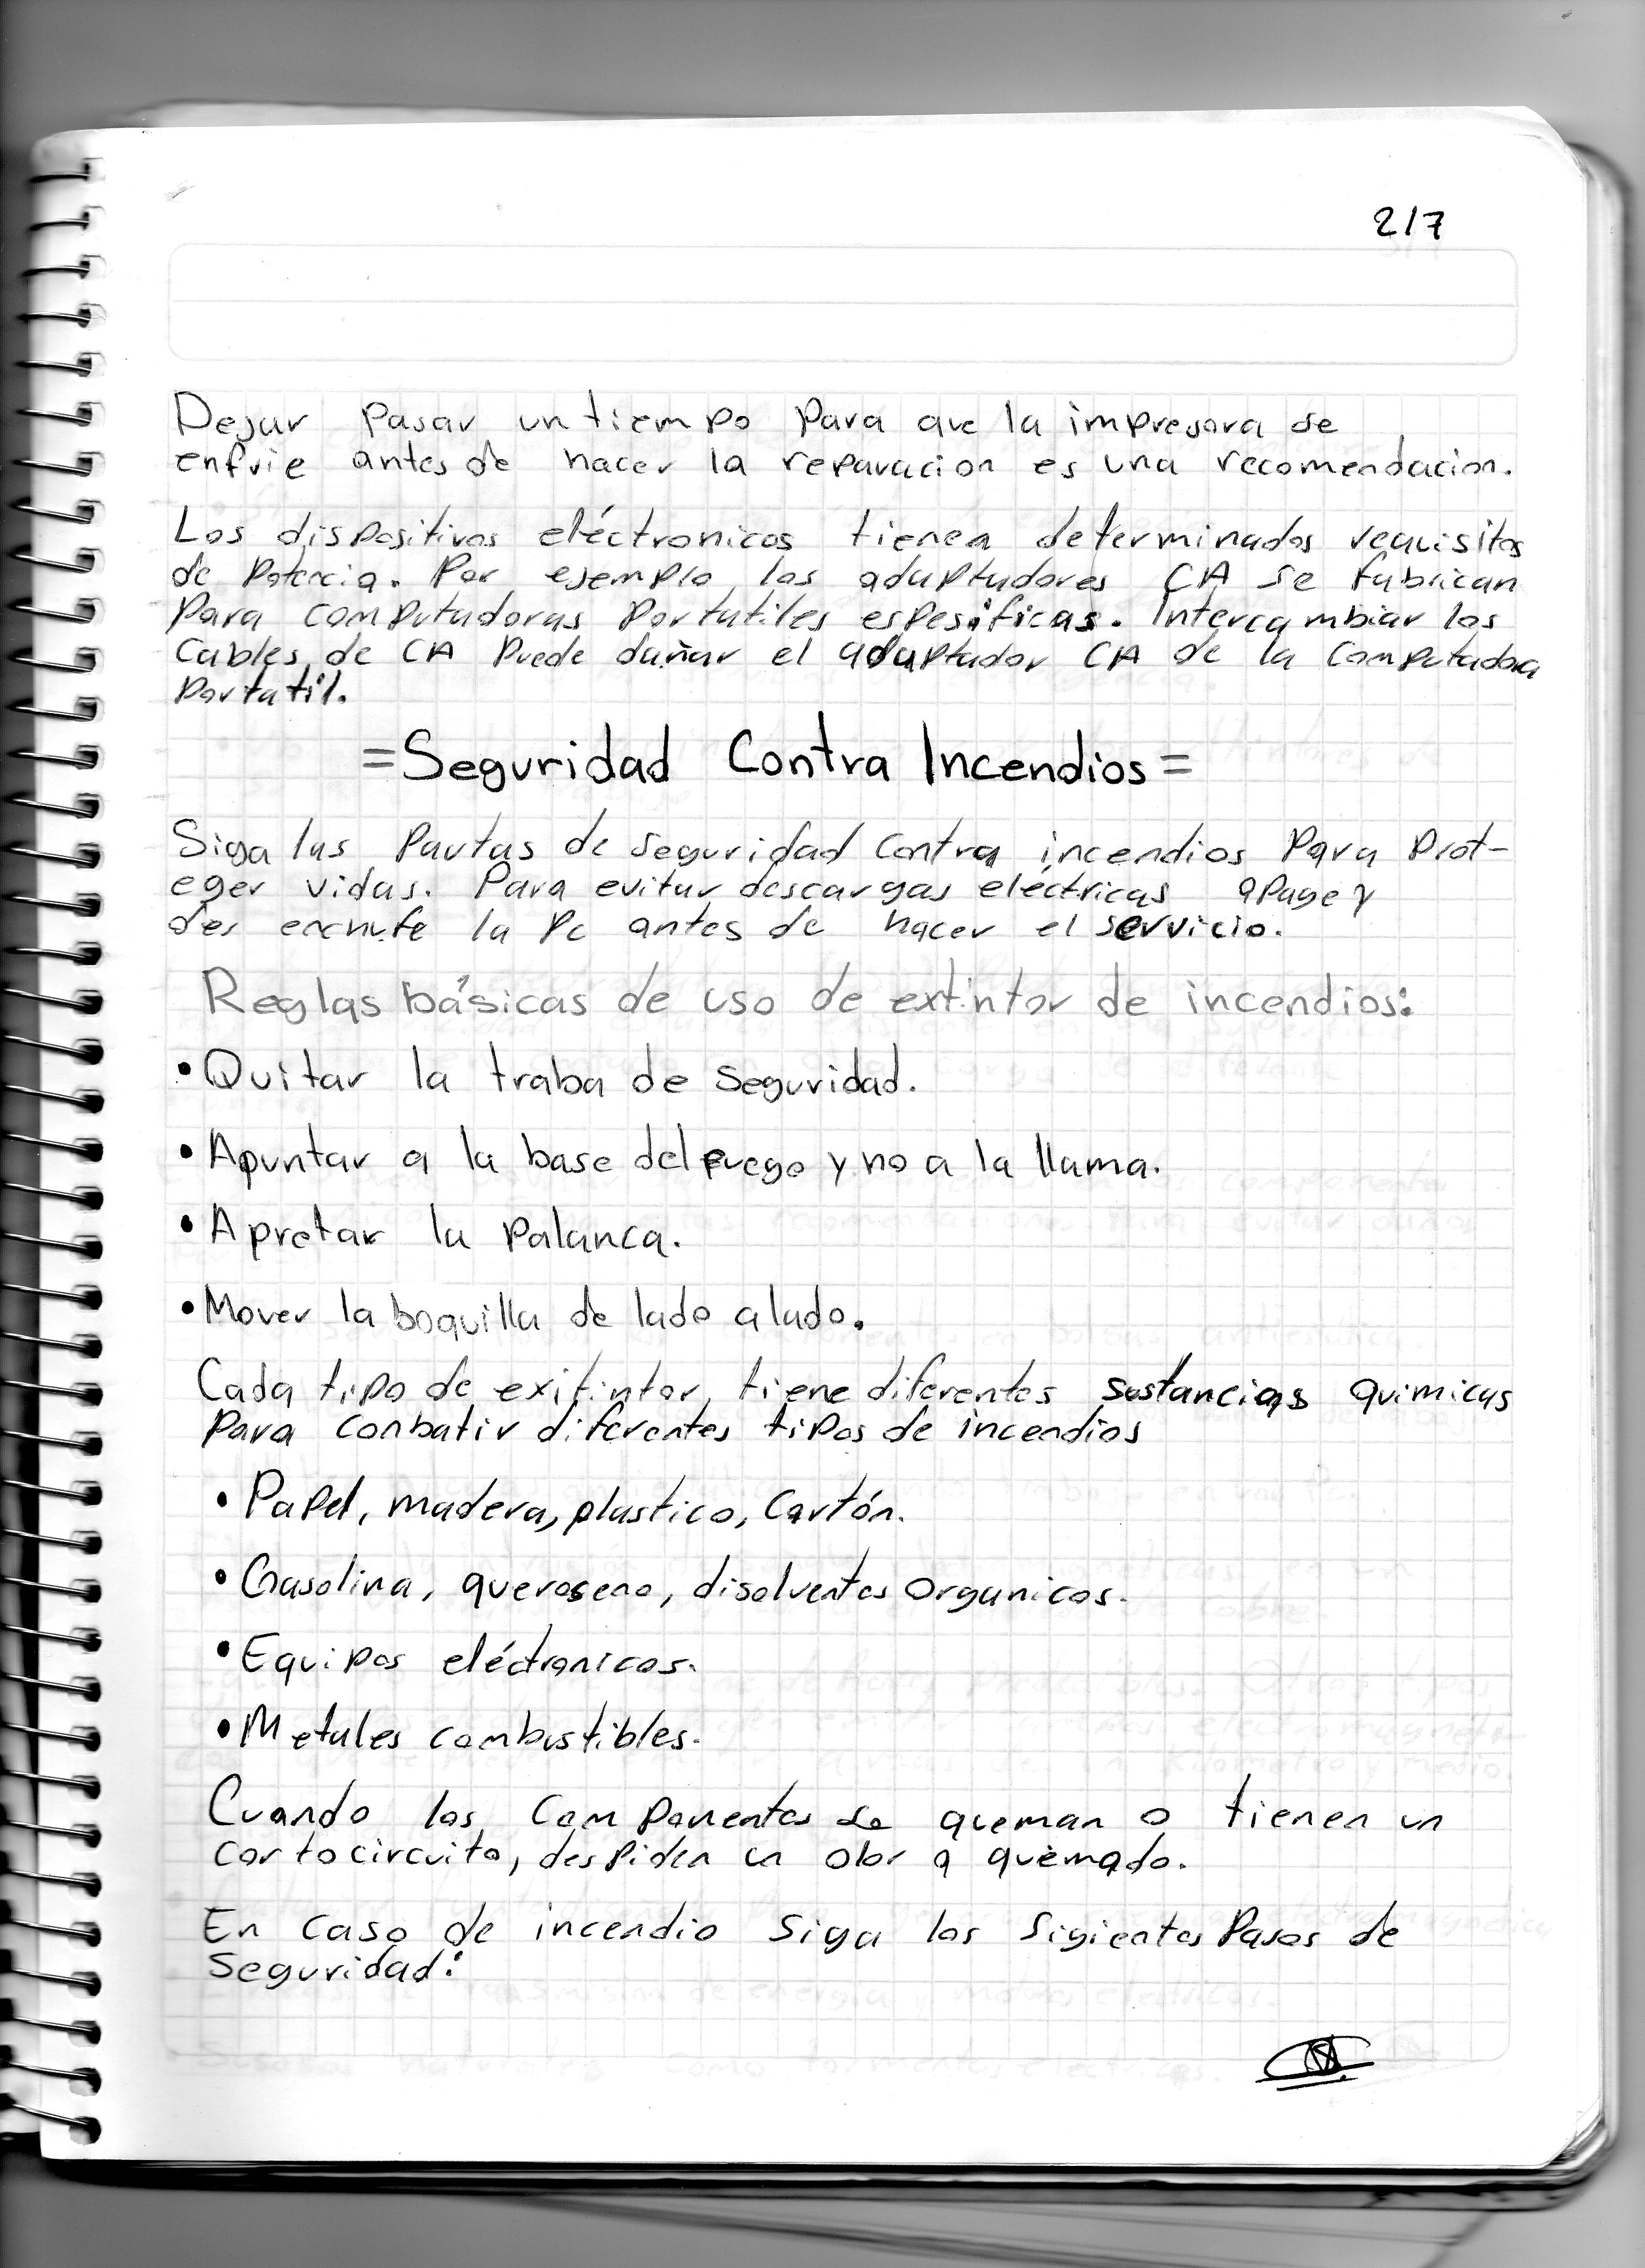 2/7
Dejar pasar un tiempo para que la impresora se
enfrie antes de hacer la reparacion es una recomendacion.
Los dispositivos eléctronicos tienen determinados requisitos
de potencia. Por ejemplo los adaptadores CA se fabrican
para computadoras portatiles espesificas. Intercambiar los
Cables de CA puede dañar el adaptador CA de la Computadora
portatil.
=Seguridad Contra Incendios=
Siga las pautas de seguridad contra incendios para prot-
eger vidas. Para evitar descargas eléctricas apague y
des enchufe la Pc antes de hacer el servicio.
Reglas básicas de uso de extintor de incendios:
• Quitar la traba de seguridad.
• Apuntar a la base del fuego y no a la llama.
• Apretar la palanca.
• Mover la boquilla de lado a lado.
Cada tipo de exitintor, tiene diferentes sustancias quimicas
para conbatir diferentes tipos de incendios
• Papel, madera, plastico, Cartón.
• Gasolina, queroseno, disolventes organicos.
• Equipos eléctronicos.
• Metales combustibles.
Cuando los Componentes se queman o tienen un
cortocircuito, despiden un olor a quemado.
En caso de incendio siga los sigientes pasos de
seguridad: